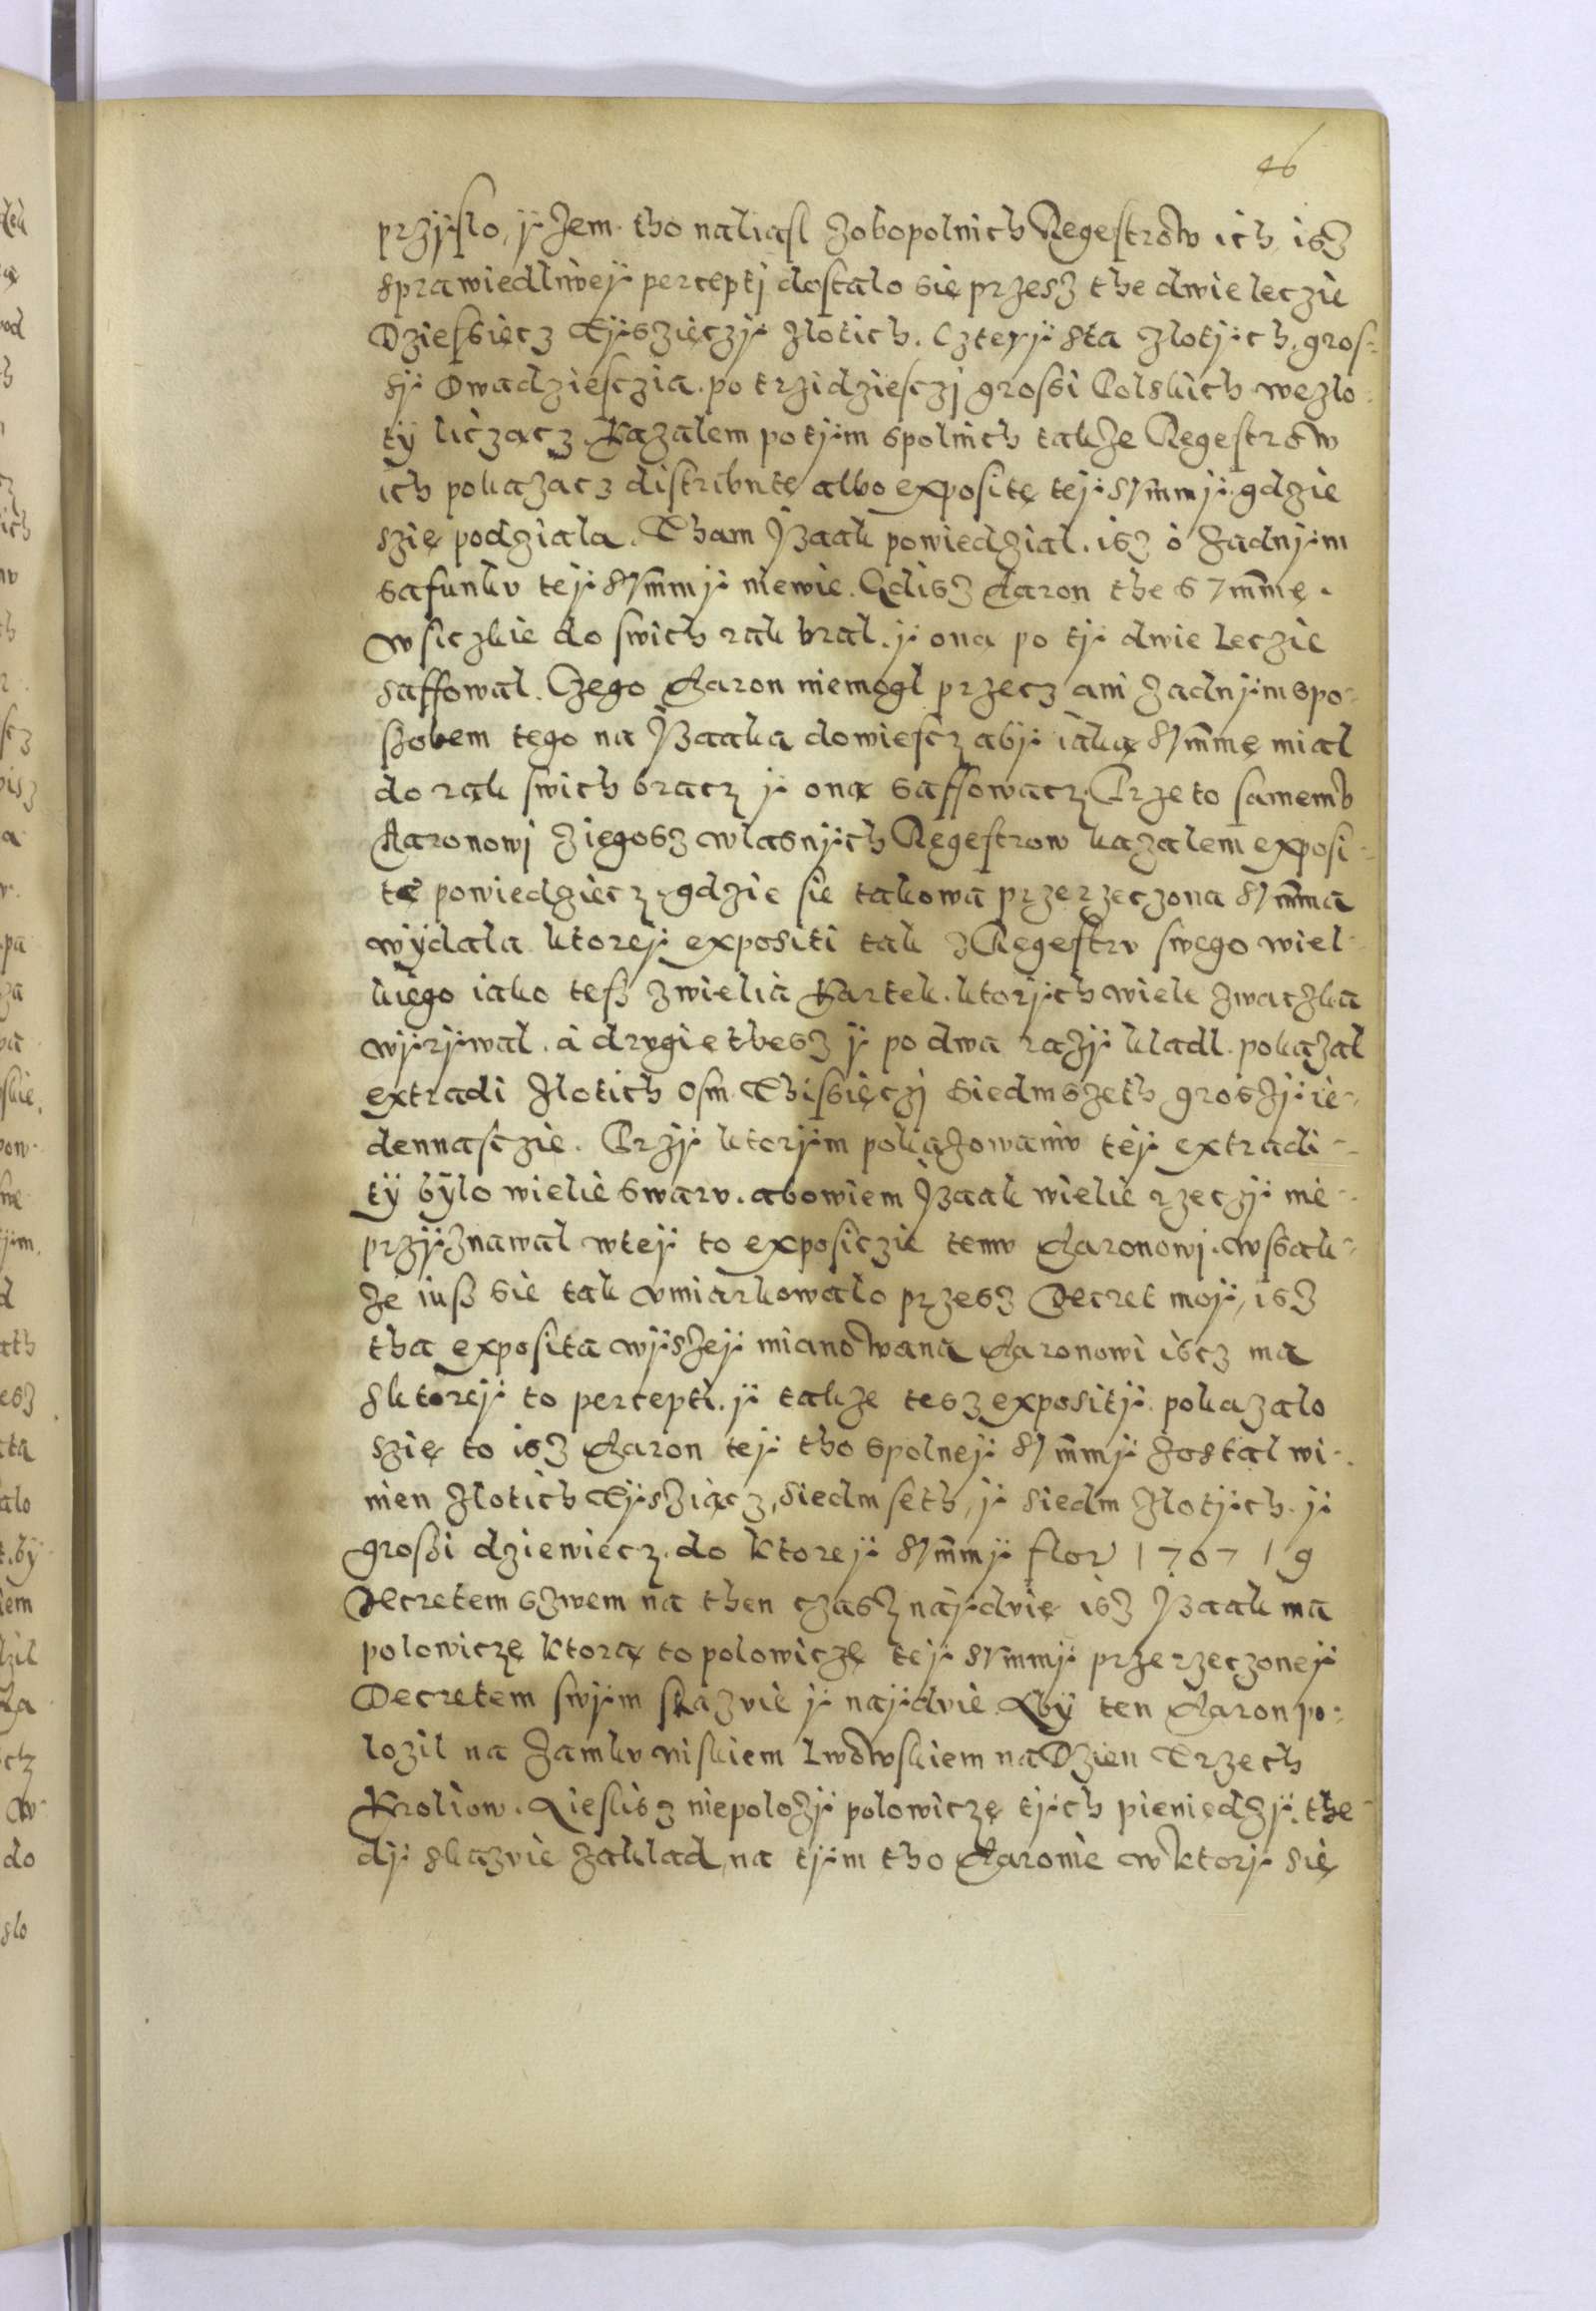 46
przÿslo, ÿ Jem tho naliasl Zobopolnich Regestrow ich isz
sprawiedliweÿ percepti dostalo się przesz the dwie leczie
Dziessięcz Tÿszięczÿ zlotich. Czterÿ sta zlotÿch, gros-
sÿ Dwadziesczia. po trzidziesczj grossi Polskich wezlo-
tÿ liczacz. Kazalem potÿm spolnich takze Regestrow
ich pokazacz distributę albo expositę teÿ sum̄mÿ. gdzie
szię podziala. Tham Jzaak powiedzial. isz o zadnÿm
safunku teÿ sum̄mÿ niewie. Gdisz Aaron the sum̄mę.
wsiczkie do swich rąk bral. ÿ oną po tÿ dwie leczie
saffowal. Czego Aaron niemogl przecz ani zadnÿm spo-
szobem tego na Jzaaka dowiescz abÿ iaką sum̄mę mial
do rąk swich bracz ÿ oną saffowacz. Przeto samemu
Aaronowi ziegosz wlasnÿch Regestrow kazalem exposi-
tę powiedziecz, gdzie sie takowa przerzeczona sum̄ma
wÿdala ktoreÿ expositi tak z Regestru swego wiel-
kiego iako tesz zwielia Kartek. ktorÿch wiele zwaczka
wÿrÿwal. a drugie thesz ÿ po dwa razÿ kladl. pokazal
extradi zlotich osm Thissięczj siedmszeth groszÿ ie-
dennasczie. Przÿ ktorÿm pokazowaniu teÿ extradi-
tÿ bÿlo wielie swaru. abowiem Jzaak wielie rzeczÿ nie-
przÿznawal wteÿ to exposiczie temu Aaronowi. wssak-
ze iusz sie tak umiarkowalo przesz Decret moÿ, isz
tha exposita wÿszeÿ mianowana Aaronowi iscz ma
sktoreÿ to percepti. ÿ takze tesz expositÿ. pokazalo
szię to isz Aaron teÿ tho spolneÿ sum̄mÿ zostal wi-
nien zlotich Tÿsziącz, siedmseth, ÿ siedm zlotÿch. ÿ
grossi dziewiecz. do ktoreÿ sum̄mÿ flor 1707 / 9
Decretem szwem na then czasz naÿduię isz Jzaak ma
polowiczę ktorą to polowiczę teÿ sum̄mÿ przerzeczoneÿ
Decretem swÿm skazuie ÿ naÿduie. Abÿ ten Aaron po-
lozil na Zamku niskiem Lwowskiem na Dzien Trzech
Kroliow. Liesliesz niepolozÿ polowiczę tÿch pieniędzÿ. the-
dÿ skazuie zaklad, na tÿm tho Aaronie w ktorÿ się